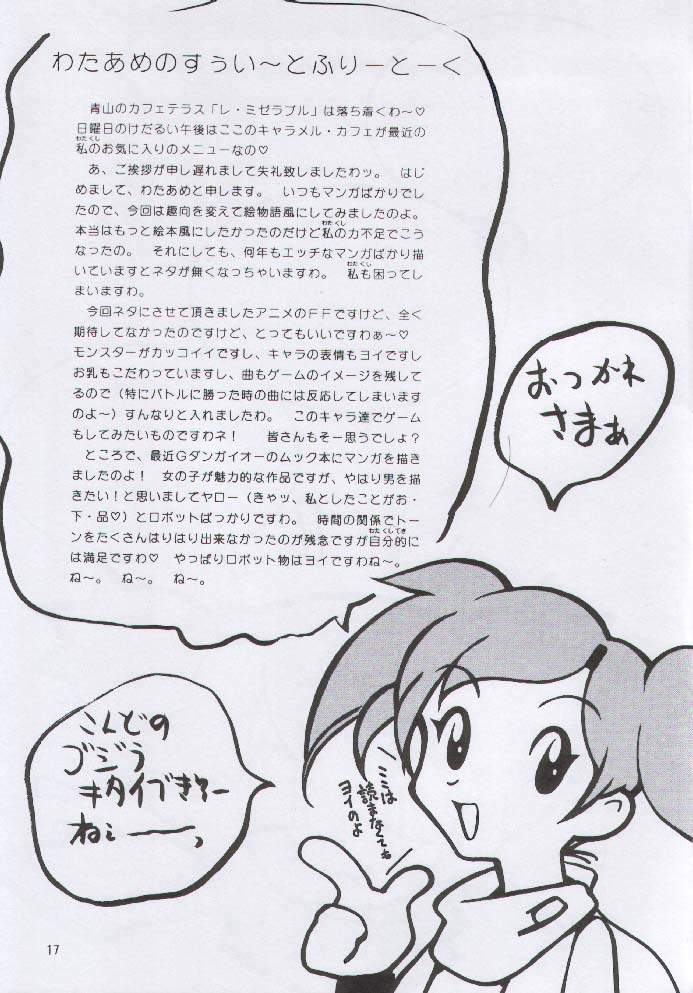 わたあめのすぅい～とふりーとーく
青山のカフェテラス「レ・ミゼラブル」は落ち着くわ～♡
日曜日のけだるい午後はここのキャラメル・カフェが最近の
わたくし
私のお気に入りのメニューなの♡
あ、ご挨拶が申し遅れまして失礼致しましたわッ。　はじ
めまして、わたあめと申します。　いつもマンガばかりでし
たので、今回は趣向を変えて絵物語風にしてみましたのよ。
わたくし
本当はもっと絵本風にしたかったのだけど私の力不足でこう
なったの。　それにしても、何年もエッチなマンガばかり描
わたくし
いていますとネタが無くなっちゃいますわ。　私も困ってし
まいますわ。
今回ネタにさせて頂きましたアニメのＦＦですけど、全く
期待してなかったのですけど、とってもいいですわぁ～♡
モンスターがカッコイイですし、キャラの表情もヨイですし
お乳もこだわっていますし、曲もゲームのイメージを残して
るので（特にバトルに勝った時の曲には反応してしまいます
のよ～）すんなりと入れましたわ。　このキャラ達でゲーム
もしてみたいものですわネ！　皆さんもそー思うでしょ？
ところで、最近Ｇダンガイオーのムック本にマンガを描き
ましたのよ！　女の子が魅力的な作品ですが、やはり男を描
きたい！と思いましてヤロー（きゃッ、私としたことがお・
下・品♡）とロボットばっかりですわ。　時間の関係でトー
わたくしてき
ンをたくさんはりはり出来なかったのが残念ですが自分的に
は満足ですわ♡　やっぱりロボット物はヨイですわね～。
ね～。　ね～。　ね～。
おつかれ
さまぁ
こんどの
ゴジラ
キタイブキ?ー
ねぇーーっ
ここは
読まなくても
ヨイのよ
17